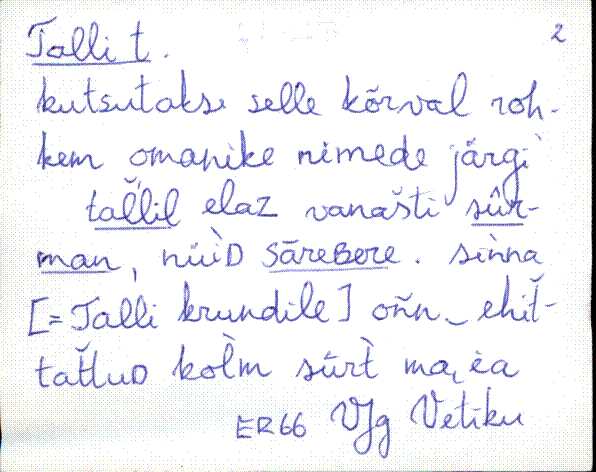 Talli t.
2
kutsutakse selle kõrval roh-
kem omanike nimede järgi
tal̆lil elaz vanašti sûr-
man, nüìD SāreBere. sinna
[=Talli krundile] oñn ehit̆-
tat̆tuD kol̀m sūrt̀
ER66 VJg Vetiku